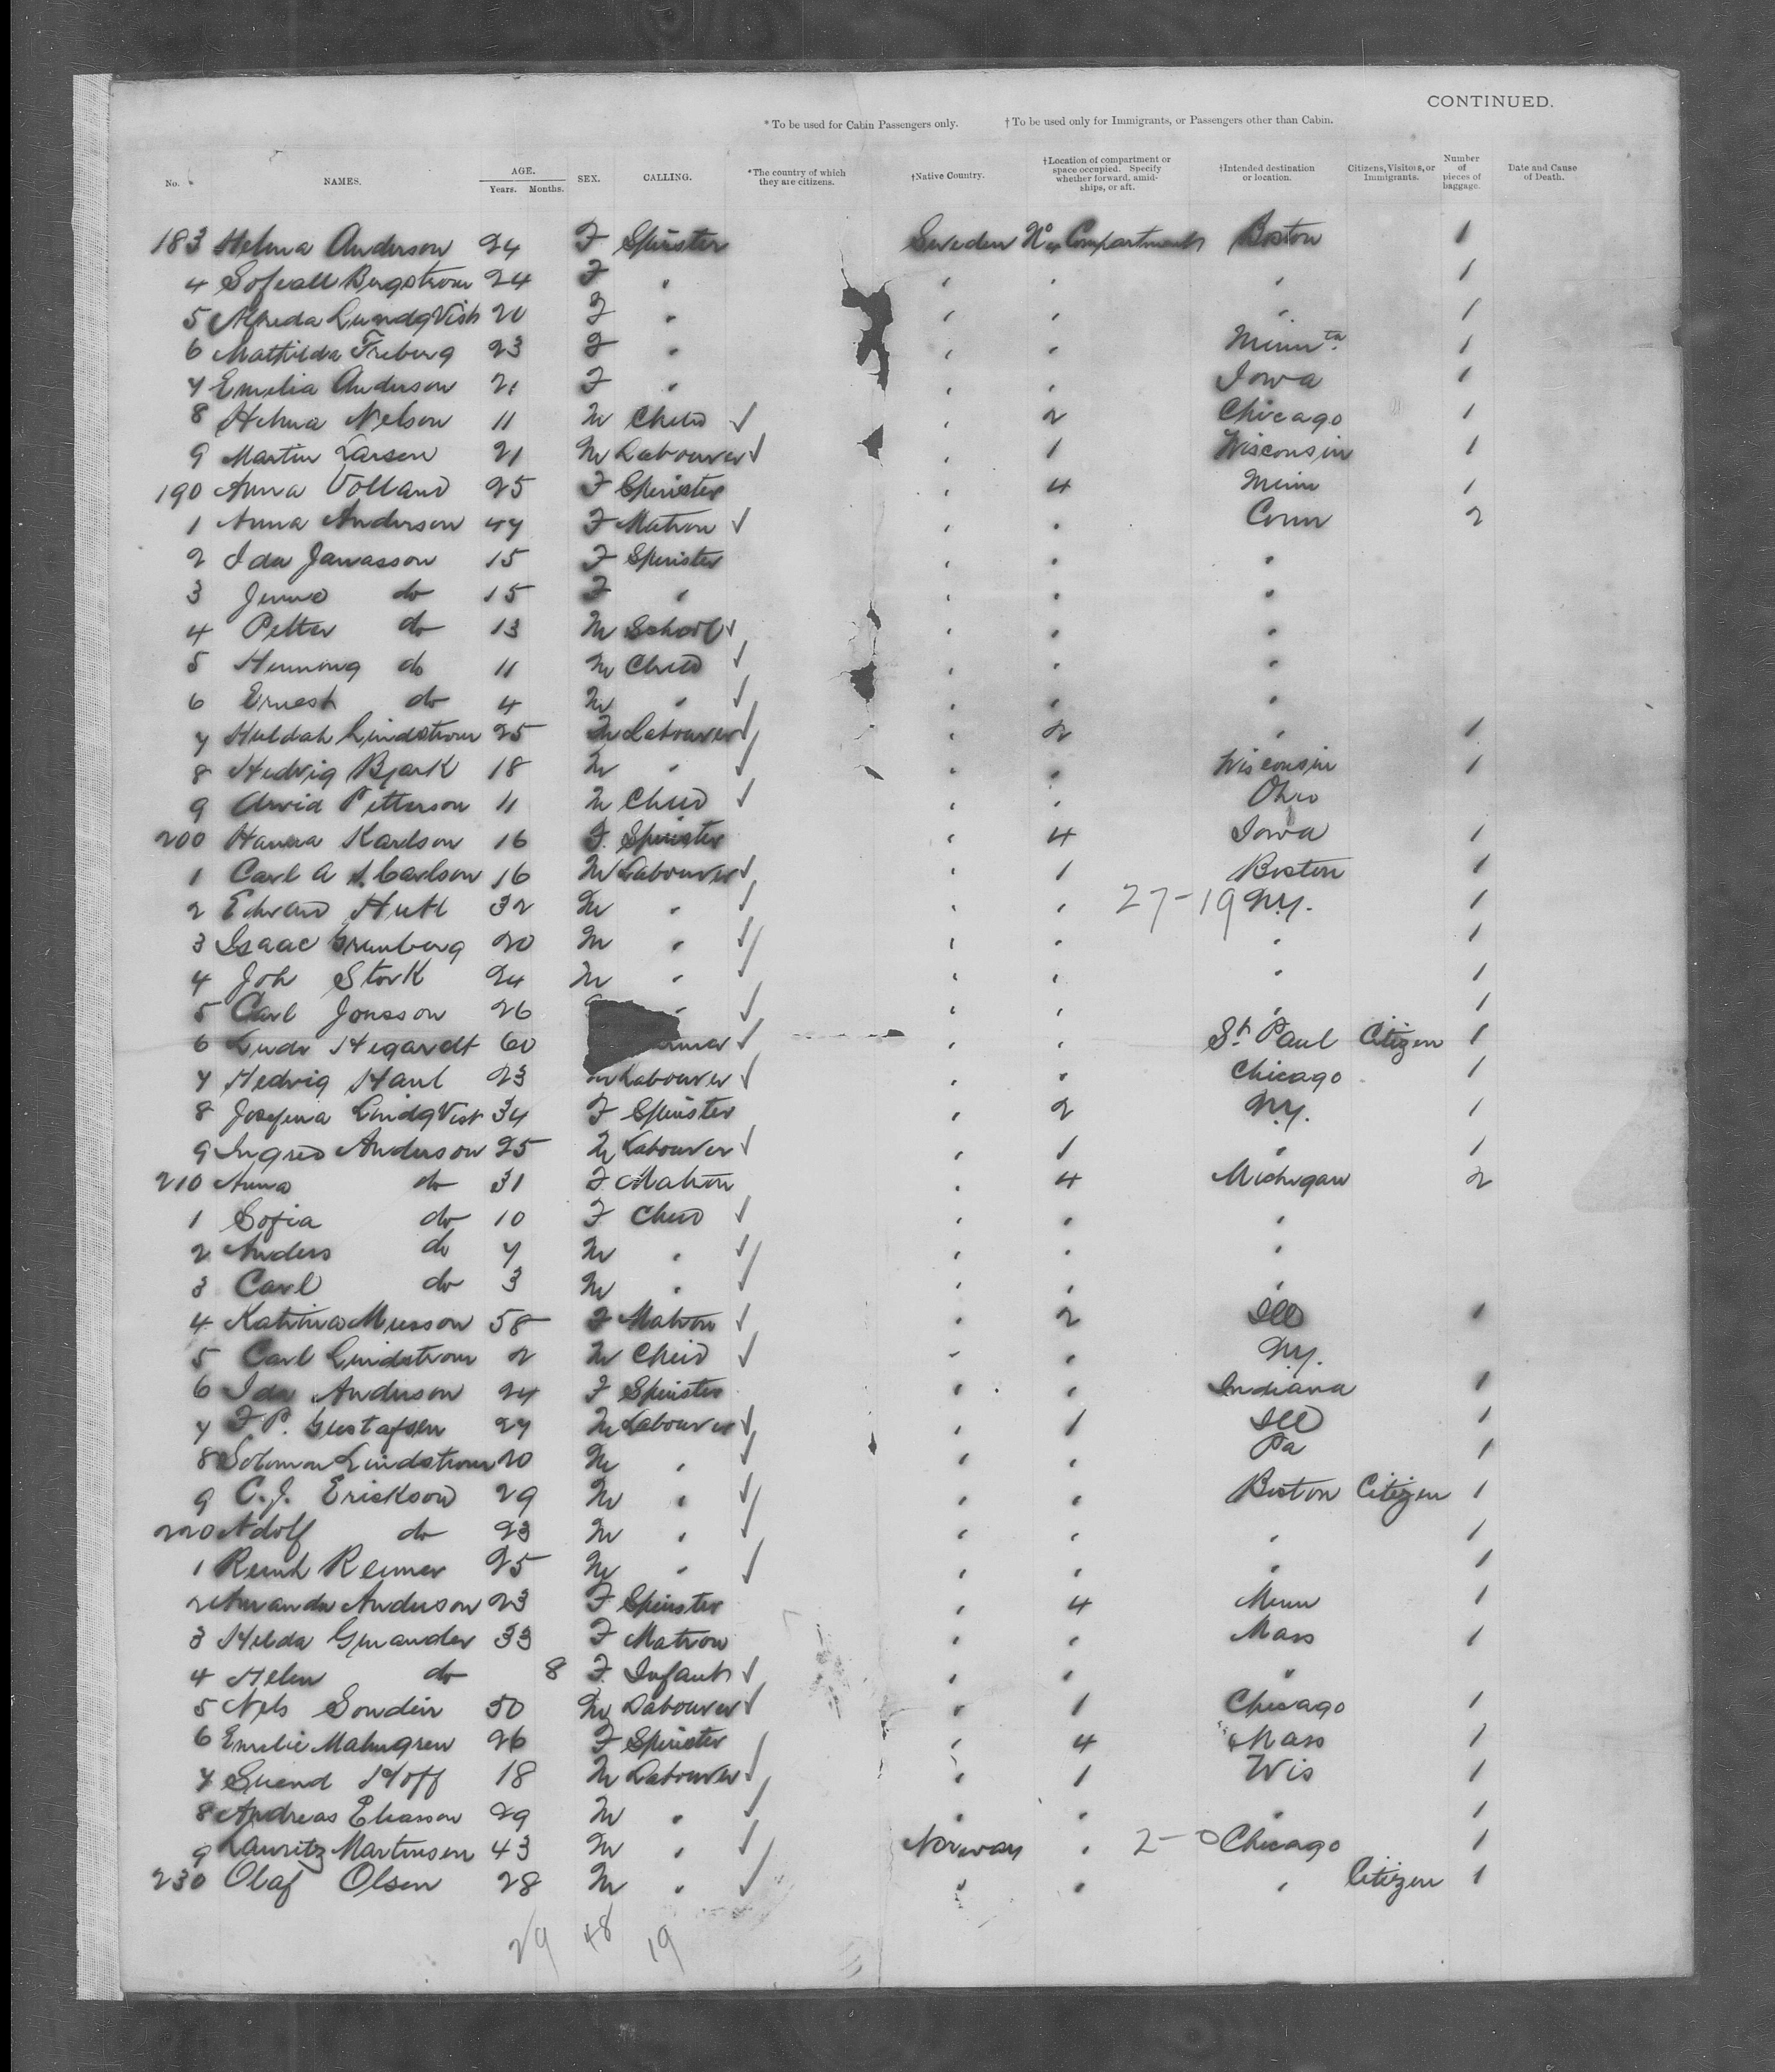 CONTINUED.
* To be used for Cabin Passengers only. † To be used only for Immigrants, or Passengers other than Cabin.
No. NAMES. AGE. Years. Months. SEX. CALLING. *The country of which they are citizens. †Native Country. †Location of compartment or space occupied. Specify whether forward, amidships, or aft. †Intended destination or location. Citizens, Visitors, or Immigrants. Number of pieces of baggage. Date and Cause of Death.
183 Helma Anderson 24 F Spinster Sweden No 4 Compartment Boston 1
4 Bergstrom 24 F " " " " 1
5 Alfreda LundqVist 20 F " " " " 1
6 Mathilda Freberg 23 F " " " Minnta 1
7 Emelia Anderson 21 F " " " Iowa 1
8 Helma Nelson 11 M Child ✓ " 2 Chicago 1
9 Martin Larsen 21 M Labourer ✓ " 1 Wisconsin 1
190 Anna Volland 25 F Spinster " 4 Minn 1
1 Anna Anderson 47 F Matron ✓ " " Conn 2
2 Ida Janasson 15 F Spinster " " "
3 do 15 F " " " "
4 Petter do 13 M School ✓ " " "
5 Henning do 11 M Child ✓ " " "
6 Ernest do 4 M " ✓ " " "
7 Huldah Lindstrom 25 M Labourer ✓ " 2 " 1
8 Hedvig Bjork 18 M " ✓ " " Wisconsin 1
9 Arvid Petterson 11 M Child ✓ " " Ohio
200 Hanna Karlson 16 F. Spinster " 4 Iowa 1
1 Carl A Carlson 16 M Labourer ✓ " 1 Boston 1
2 Edvard 32 M " ✓ " " 27-19 N.Y. 1
3 Isaac Grunberg 20 M " ✓ " " " 1
4 Joh Stork 24 M " ✓ " " " 1
5 Carl Jonsson 26 " ✓ " " " 1
6 Hegardt 60 ✓ " " St. Paul Citizen 1
7 Hedvig 23 M Labourer ✓ " " Chicago 1
8 Josefina LindqVist 34 F Spinster " 2 N.Y. 1
9 Ingred Anderson 25 M Labourer ✓ " 1 " 1
210 Anna do 31 F Matron " 4 Michigan 2
1 Sofia do 10 F. Child ✓ " " "
2 Anders do 7 M " ✓ " " "
3 Carl do 3 M " ✓ " " "
4 Katrina 58 F Matron ✓ " 2 Ill 1
5 Carl Lindstrom 2 M Child ✓ " " N.Y.
6 Ida Anderson 24 F Spinster " " Indiana 1
7 F. P. Gustafsen 27 M Labourer ✓ " 1 Ill 1
8 Solomon Lindstrom 20 M " ✓ " " Pa 1
9 C. J. Erickson 29 M " ✓ " " Boston Citizen 1
220 Adolf do 23 M " ✓ " " " 1
1 Reimer 25 M " ✓ " " " 1
2 Amanda Anderson 23 F Spinster " 4 Minn 1
3 Hilda 33 F Matron " " Mass 1
4 Helen do 8 F. Infant ✓ " " "
5 Nels 50 M Labourer ✓ " 1 Chicago 1
6 Emelie Malmgren 26 F Spinster " 4 Mass 1
7 Hoff 18 M Labourer ✓ " 1 Wis 1
8 Andreas Eliasson 29 M " ✓ " " " 1
9 Lauritz Martinsen 43 M " ✓ Norway " 2-0 Chicago 1
230 Olaf Olsen 28 M " ✓ " " " Citizen 1
29 48 19